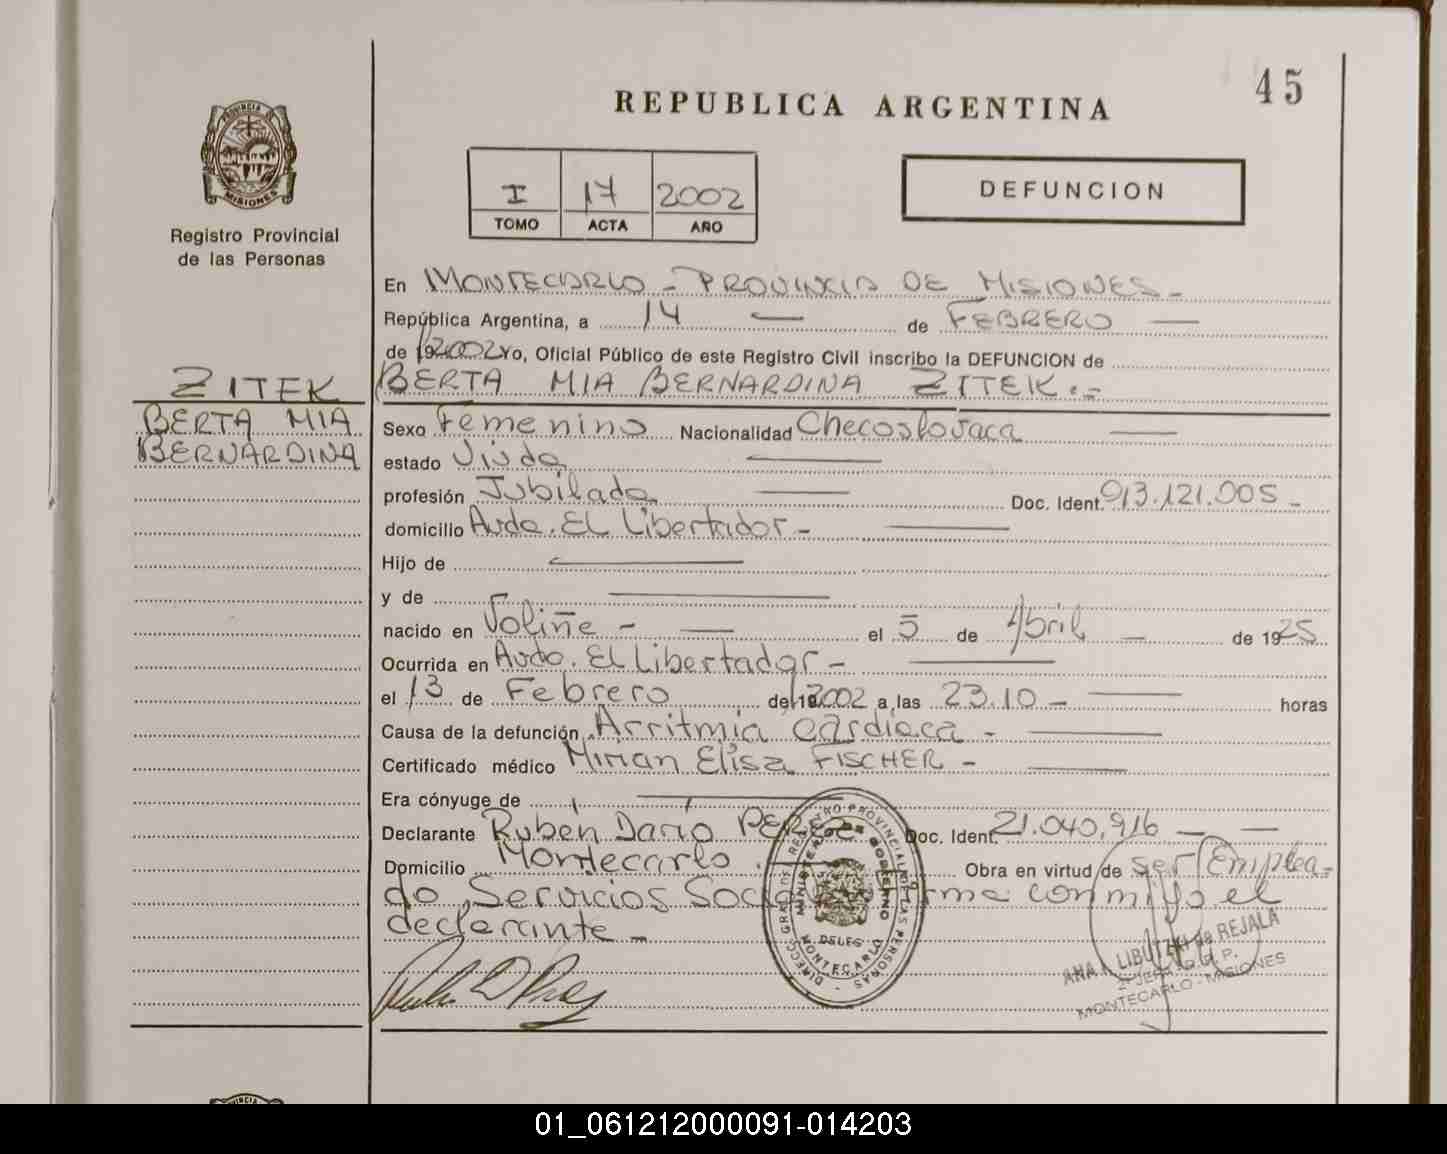 45
REPUBLICA ARGENTINA
PROVINCIA DE
MISIONES
Registro Provincial
de las Personas
I 17 2002
TOMO ACTA AÑO
DEFUNCION
En MONTECARLO - PROVINCIA DE MISIONES -
República Argentina, a 14 — de FEBRERO —
de 19 2002 Yo, Oficial Público de este Registro Civil inscribo la DEFUNCION de
BERTA MIA BERNARDINA ZITEK .-
ZITEK
BERTA MIA
BERNARDINA
Sexo Femenino Nacionalidad Checoslovaca —
estado Viuda —
profesión Jubilada — Doc. Ident. 913.121.005 -
domicilio Avda. El Libertador - —
Hijo de —
y de —
nacido en Voliñe - — el 5 de Abril — de 1925
Ocurrida en Avda. El Libertador - —
el 13 de Febrero de 19 2002 a las 23.10 - — horas
Causa de la defunción Arritmia cardiaca - —
Certificado médico Mirian Elisa FISCHER - —
Era cónyuge de —
Declarante Rubén Darío PEREZ Doc. Ident. 21.040,916 — —
Domicilio Montecarlo . Obra en virtud de ser Emplea-
do Servicios Firma conmigo el
declarante -
DIRECC. GRAL. DE REGISTRO PROVINCIAL DE LAS PERSONAS
MINISTERIO DE GOBIERNO
DELEG.
MONTECARLO
ANA de REJALA
MONTECARLO - MISIONES
01_061212000091-014203